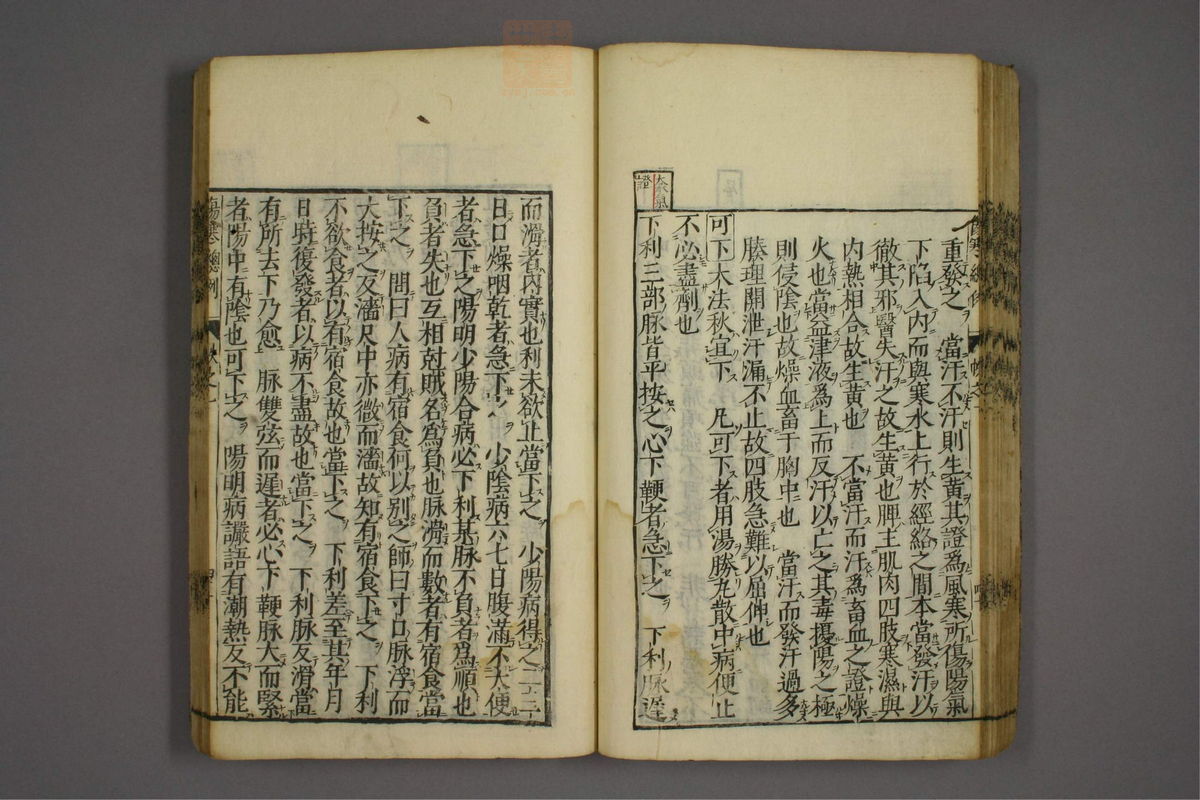 重發之 當汗不汗則生黃其證爲風寒所傷陽氣
下陷入內而與寒水上行於經絡之間本當發汗以
徹其邪醫失汗之故生黃也脾主肌肉四肢寒濕與
內熱相合故生黃也 不當汗而汗爲畜血之證燥
火也當益津液爲上而反汗以亡之其毒擾陽之極
則侵陰也故燥血畜于胸中也 當汗而發汗過多
腠理開泄汗漏不止故四肢急難以屈伸也
可下大法秋宜下 凡可下者用湯勝丸散中病便止
不必盡劑也
下利三部脉皆平按之心下鞕者急下之 下利脉遲
而滑者內實也利未欲止當下之 少陽病得之二三
日口燥咽乾者急下之 少陰病六七日腹滿不大便
者急下之陽明少陽合病必下利甚脉不負者爲順也
負者失也互相尅賊名爲負也脉滑而數者有宿食當
下之 問曰人病有宿食何以別之師曰寸口脉浮而
大按之反濇尺中亦微而濇故知有宿食下之 下利
不欲食者以有宿食故也當下之 下利差至其年月
日時復發者以病不盡故也當下之 下利脉反滑當
有所去下乃愈 脉雙弦而遲者必心下鞕脉大而緊
者陽中有陰也可下之 陽明病讝語有潮熱反不能
傷寒總例